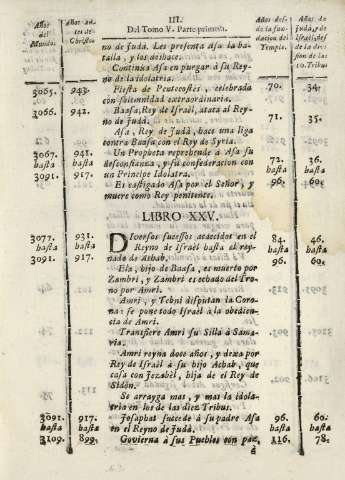 III.
Del Tomo V. Parte primera.
Años del Mundo.
Años antes de Christo
Años desde la fundacion del Templo.
no de Judà. Les presenta Asa la batalla, y los deshace.
Continúa Asa en purgar à su Reyno de la idolatria.
3065. 943. Fiesta de Pentecostés, celebrada 70. 34.
con solemnidad extraordinaria.
3066. 942. Baasa, Rey de Israèl, ataca al Rey- 71. 35.
no de Judà.
Asa, Rey de Judà, hace una liga
contra Baasa con el Rey de Syria.
Un Propheta reprehende à Asa su
3067. 941. desconfianza, y su confederacion con 72. 36.
hasta hasta un Principe Idolatra. hasta hasta
3091. 917. Es castigado Asa por el Señor, y 96. 60.
muere como Rey penitente.
LIBRO XXV.
3077. 931. Diversos sucessos acaecidos en el 84. 46.
hasta hasta Reyno de Israèl hasta el rey- hasta hasta
3091. 917. nado de Achab. 96. 60.
Ela, hijo de Baasa, es muerto por
Zambri, y Zambri es echado del Tro-
no por Amri.
Amri, y Tebni disputan la Coro-
na: se pone todo Israèl à la obedien-
cia de Amri.
Transfiere Amri su Silla à Sama-
ria.
Amri reyna doce años, y dexa por
Rey de Israèl à su hijo Achab, que
casa con Jezabèl, hija de el Rey de
Sidòn.
Se arrayga mas, y mas la idola-
tria en los de las diez Tribus.
3091. 917. Josaphat sucede à su padre Asa 96. 60.
hasta hasta en el Reyno de Judà. hasta hasta
3109. 899. Govierna à sus Pueblos con paz, 116. 78.